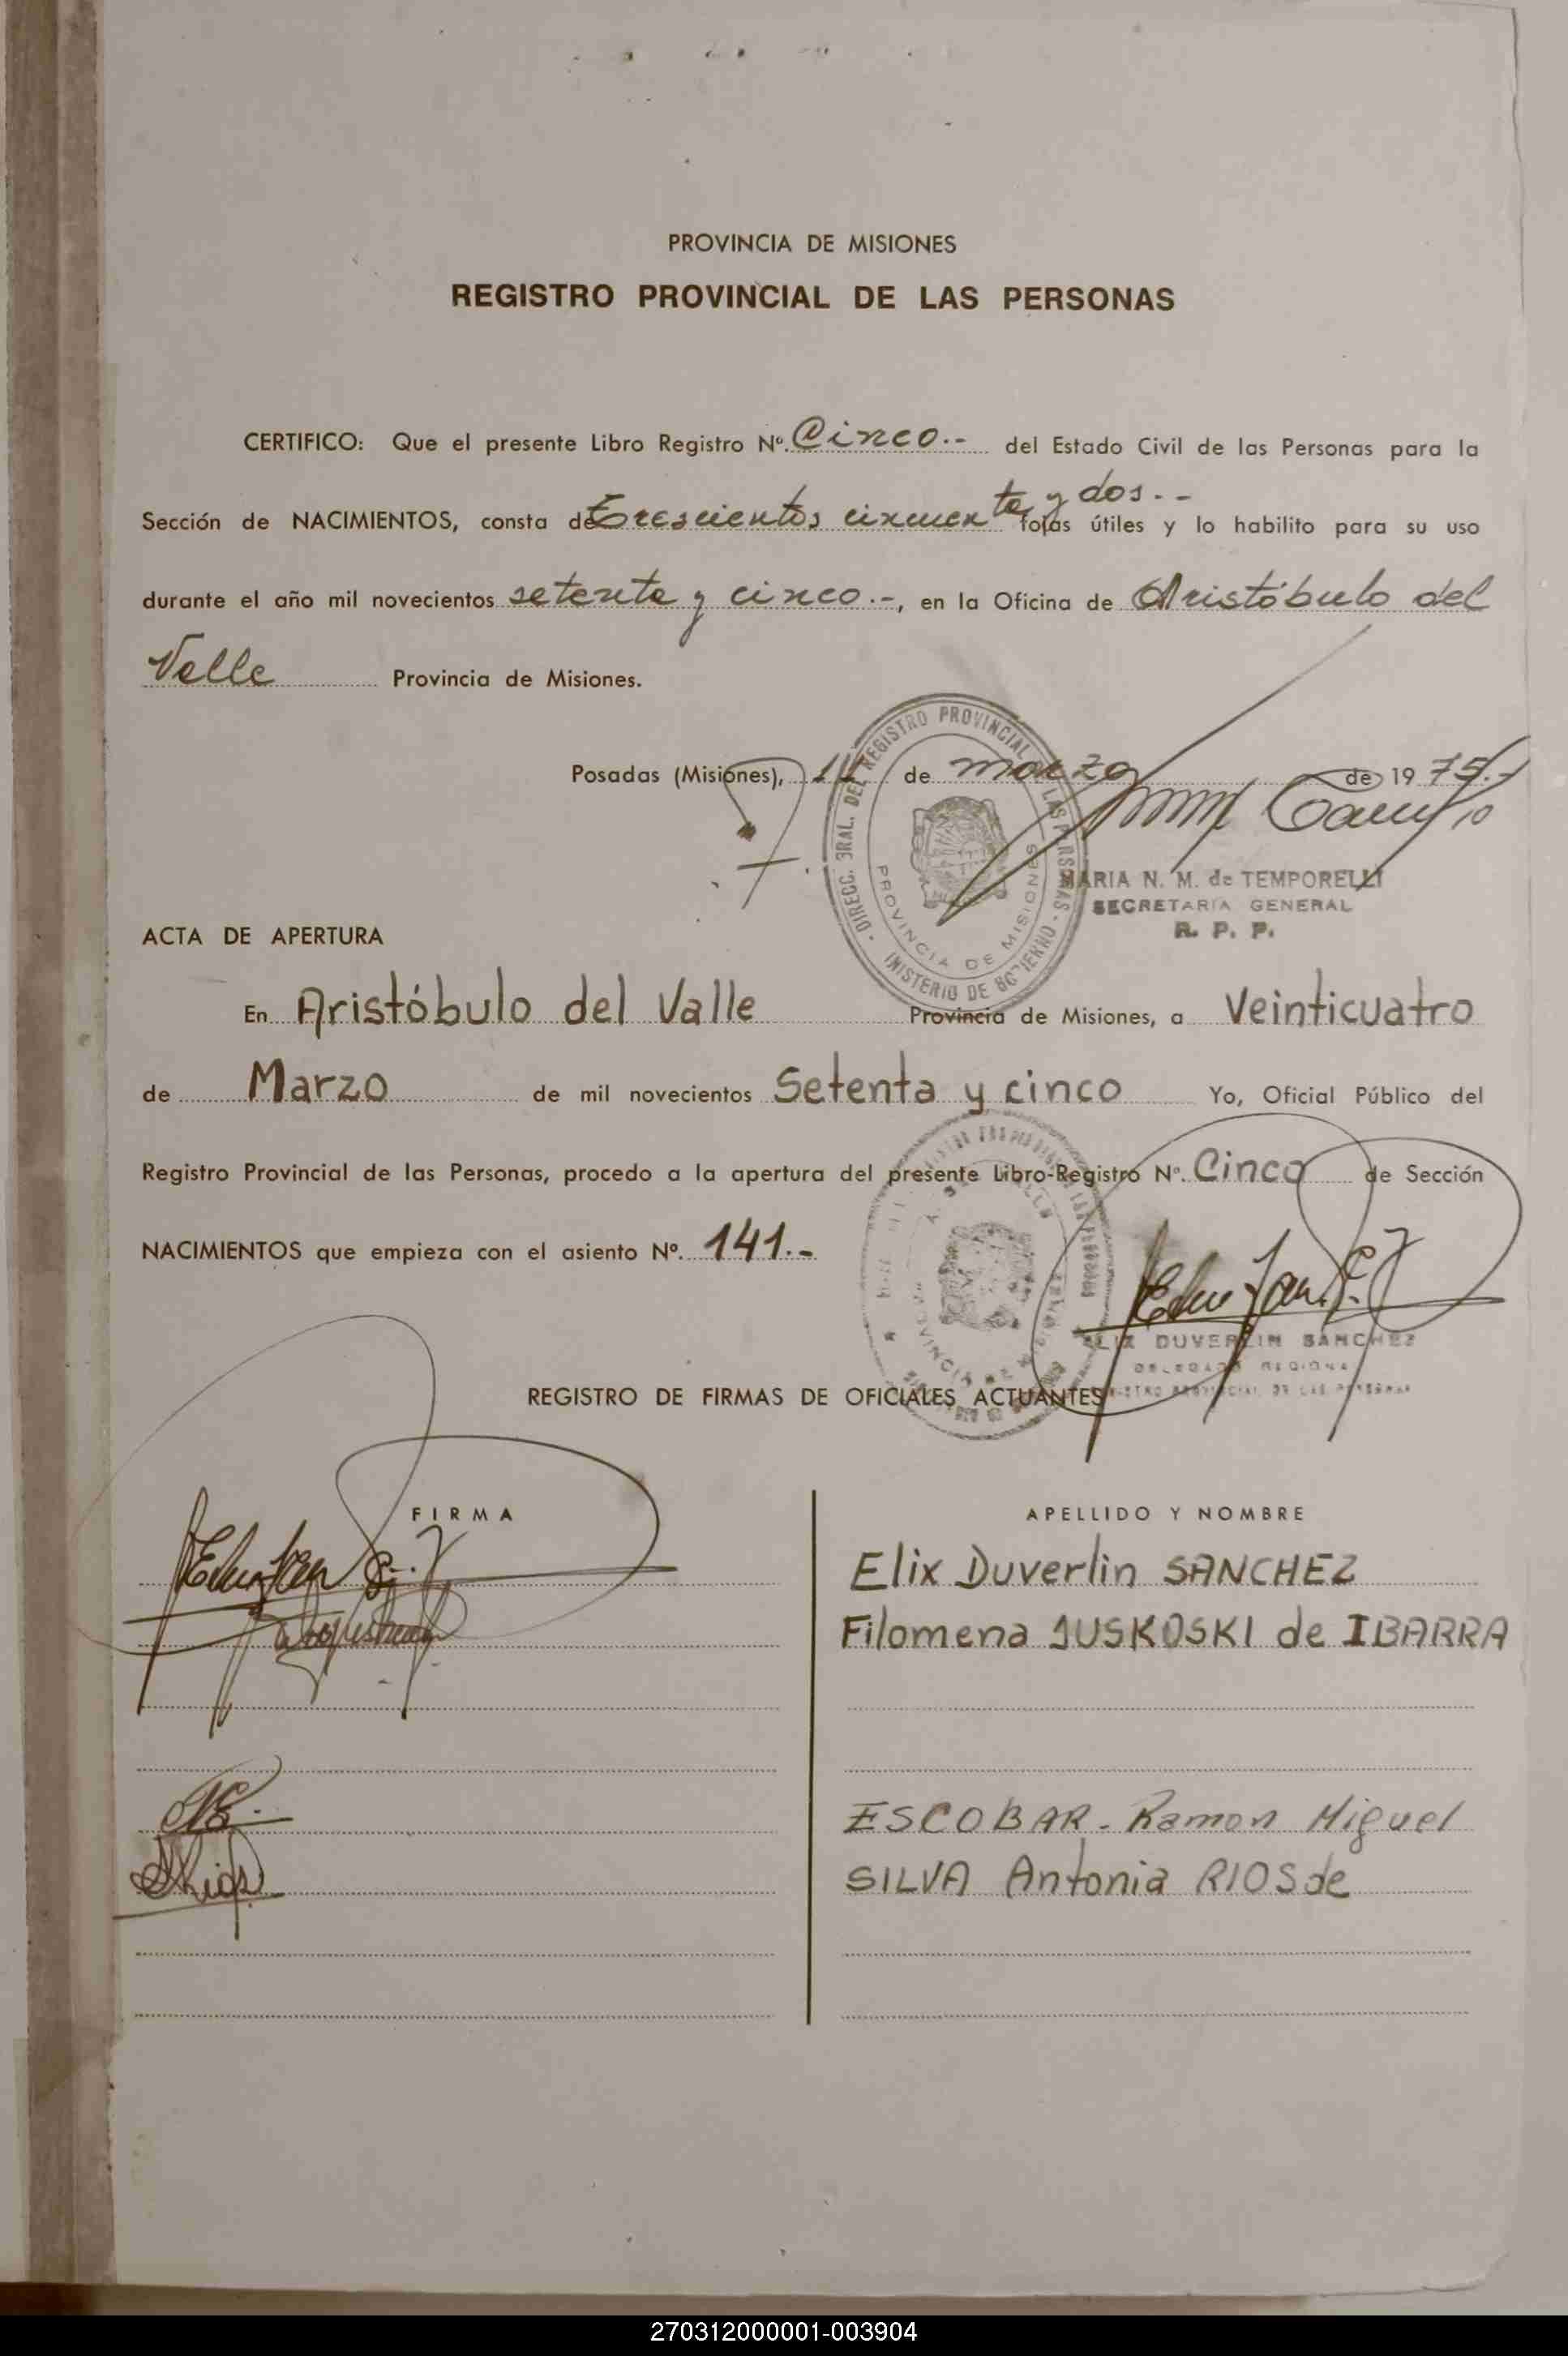 PROVINCIA DE MISIONES
REGISTRO PROVINCIAL DE LAS PERSONAS
CERTIFICO: Que el presente Libro Registro Nº. Cinco.- del Estado Civil de las Personas para la
Sección de NACIMIENTOS, consta de Trescientos cincuenta y dos.- fojas útiles y lo habilito para su uso
durante el año mil novecientos setenta y cinco.-, en la Oficina de Aristóbulo del
Valle Provincia de Misiones.
Posadas (Misiones), de marzo de 1975.-
DIRECC. GRAL. DEL REGISTRO PROVINCIAL DE LAS PERSONAS - MINISTERIO DE GOBIERNO -
PROVINCIA DE MISIONES
MARIA N. M. de TEMPORELLI
SECRETARIA GENERAL
R. P. P.
ACTA DE APERTURA
En Aristóbulo del Valle Provincia de Misiones, a Veinticuatro
de Marzo de mil novecientos Setenta y cinco Yo, Oficial Público del
Registro Provincial de las Personas, procedo a la apertura del presente Libro-Registro Nº. Cinco de Sección
NACIMIENTOS que empieza con el asiento Nº. 141.-
ELIX DUVERLIN SANCHEZ
DELEGADO REGIONAL
REGISTRO PROVINCIAL DE LAS PERSONAS
REGISTRO DE FIRMAS DE OFICIALES ACTUANTES
FIRMA APELLIDO Y NOMBRE
Elix Duverlin SANCHEZ
Filomena JUSKOSKI de IBARRA
ESCOBAR - Ramon Miguel
SILVA Antonia RIOS de
270312000001-003904